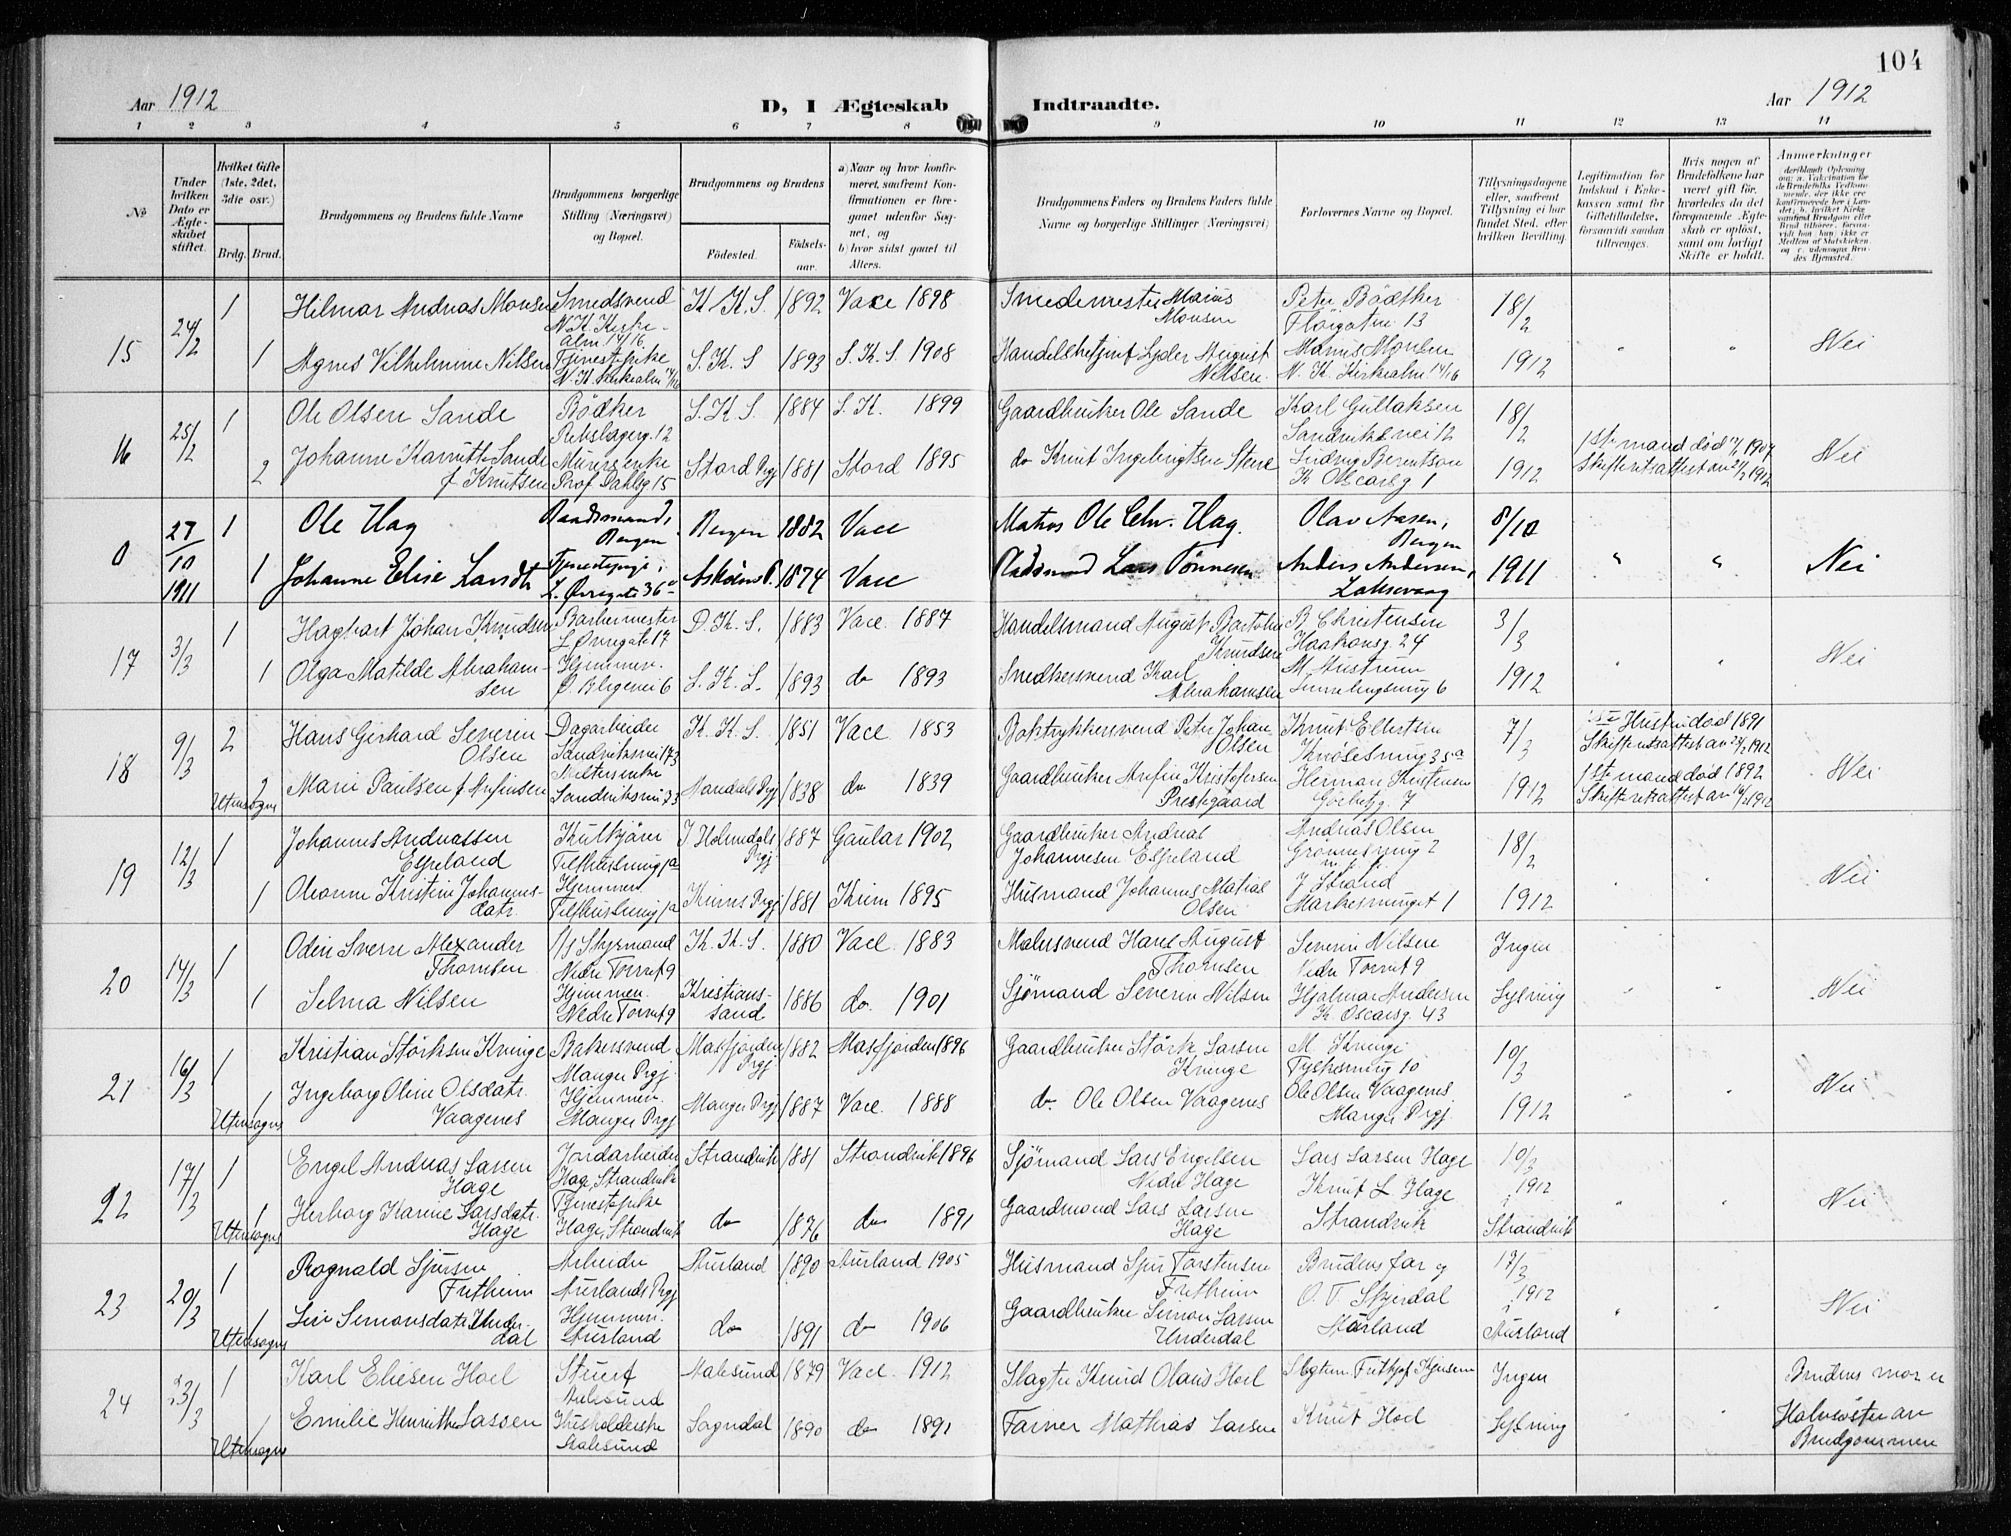 104
Aar 1912
D, I Ægteskab
Indtraadte.
Aar 1912
1 2 3 4 5 6 7 8 9 10 11 12 13 14
No
Under hvilken Dato er Ægteskabet stiftet.
Hvilket Gifte (1ste, 2det, 3die osv.)
Brdg. Brud.
Brudgommens og Brudens fulde Navne
Brudgommens borgerlige Stilling (Næringsvei) og Bopæl.
Brudgommens og Brudens
Fødested.
Fødselsaar.
a) Naar og hvor konfirmeret, saafremt Konfirmationen er foregaaet udenfor Sognet, og
b) hvor sidst gaaet til Alters.
Brudgommens Faders og Brudens Faders fulde Navne og borgerlige Stillinger (Næringsvei)
Forlovernes Navne og Bopæl.
Tillysningsdagene eller, saafremt Tillysning ei har fundet Sted, efter hvilken Bevilling.
Legitimation for Indskud i Enkekassen samt for Giftetilladelse, forsaavidt saadan tiltrænges.
Hvis nogen af Brudefolkene har været gift før, hvorledes da det foregaaende Ægteskab er opløst, samt om lovligt Skifte er holdt.
Anmærkninger
15 24/2 1 Hilmar Andreas Monsen Smedsvend K.K.S. 1892 Vace 1898 Smedemester Marius Monsen Peter Bödtker 18/2
N.K. Kirkealm 14/16 Fløigaten 13
1 Agnes Vilhelmine Nilsen Tjenestepike S.K.S 1893 S.K.S. 1908 August Nilsen Marius Monsen N.K. Kirkealm 14/16 1912 " " Nei
16 25/2 1 Ole Olsen Sande Bödker S.K.S. 1884 S.K. 1899 Gaardbruker Ole Sande Karl Gullaksen 18/2
Rebslagerg. 12 Sandviksvei 12
2 Johanne Sande f Knutsen Murersenke Stord Prgj 1881 Stord 1895 do Knut Ingebrigtsen Ludvig Berentsen 1912 1ste mand död 1907 Nei
Prof Dahlsg 15 K Oscarsg 1 Skifteretsattest av 21/2 1912
0 27/10 1911 1 Ole Hag Baadsmand, Bergen Bergen 1882 Vace Matros Ole Chr. Hag. Olav Aasen, Bergen 8/10
1 Johanne Elise Landth Tjenestepige, Askøens P. 1874 Vace Pladsmand Lars Tönnesen Anders Andersen, Laksevaag 1911 " " Nei
L. Øvregate 36a
17 3/3 1 Hagbart Johan Knudsen Barbermester D.K.S. 1883 Vace. 1887 Handelsmand August Knudsen B Christensen 3/3
L Øvregate 17 Haakonsg. 24
1 Olga Matilde Abrahamsen Hjemmen. S.K.S. 1893 do 1893 Snedkersvend Karl Abrahamsen M Austrem 1912 " " Nei
18 9/3 2 Hans Gerhard Severin Olsen Dagarbeider K.K.S. 1851 Vace 1853 Boktrykkersvend Peter Johan Olsen Knut Ellertsen 7/3 1ste Hustru död 1891
Sandviksvei 173 Knösesmug 35a
2 Marie Paulsen f Arfinsen Sandviksvei 73 Mandals Prgj 1838 do 1839 Gaardbruker Arfin Kristofersen Prestegaard Herman Kristensen 1912 1ste mand död 1892 Nei
Utensogns
19 12/3 1 Johannes Andreassen Espeland Kulkjörer J Holmedals Prgj 1887 Gaular 1902 Gaardbruker Andreas Johannesen Espeland Andreas Olsen 18/2
1 Oleanne Kristine Johannesdatr. Hjemmen Kinns Prgj 1881 Kinn 1895 Husmand Johannes Matias Olsen J Strand Markesmuget 1 1912 " " Nei
20 14/3 1 Odin Sverre Alexander Thomsen Styrmand K.K.S. 1880 Vace. 1883 Malersvend Hans August Thomsen Severin Nilsen Ingen
Nedre Torvet 9 Nedre Torvet 9
1 Selma Nilsen Hjemmen. Kristianssand 1886 do. 1901 Sjömand Severin Nilsen Hjalmar Andersen Lysning " " Nei
Nedre Torvet 9 K. Oscarsg. 43
21 16/3 1 Kristian Störksen Kvinge Bakersvend Masfjorden Prgj. 1882 Masfjorden 1896 Gaardbruker Störk Larsen Kvinge M Kvinge 10/3
Manger Prgj. Tyskesmug 10
1 Ingeborg Oline Olsdatr. Vaagenes Hjemmen. Manger Prgj 1887 Vace. 1888 do. Ole Olsen Vaagenes Ole Olsen Vaagenes 1912 " " Nei
Utensogns Manger Prgj Manger Prgj.
22 17/3 1 Engel Andreas Larsen Hage Jordarbeider Strandvik 1881 Strandvik 1896 Sjömand Lars Engelsen Nedre Hage Lars Larsen Hage 10/3 1912
Hage, Strandvik Knut L Hage
1 Herborg Karine Larsdatr. Hage Tjenestepike do 1876 do 1891 Gaardmand Lars Larsen Hage Strandvik i Strandvik " " Nei
Utensogns Hage, Strandvik
23 20/3 1 Ragnald Sjursen Fretheim Arbeider Aurland 1890 Aurland 1905 Husmand Sjur Torstensen Fretheim Brudens far og 17/3 1912
Aurlands Prgj O. T. Skjerdal
1 Siri Simonsdatr Underdal Hjemmen. do 1891 do 1906 Gaardbruker Simon Larsen Underdal Aurland i Aurland " " Nei
Utensogns Aurland
24 23/3 1 Karl Eliesen Hoel Stuert Aalesund 1879 Vace. 1912 Slagter Knud Olaus Hoel Slagterm. Frithjof Ingen Brudens mor er
Aalesund
1 Emilie Henritte Lassen Husholderske Sogndal 1890 do 1891 Farver Mathias Larsen Knut Hoel Lysning " " Halvsöster av Brudgommen
Utensogns Aalesund